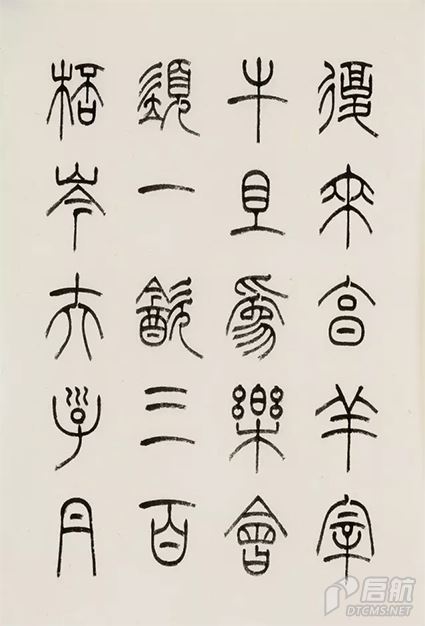 復來亯羊宰
牛且爲樂會
須一㱃三百
桮岑夫子丹
启航
DTCMS.NET